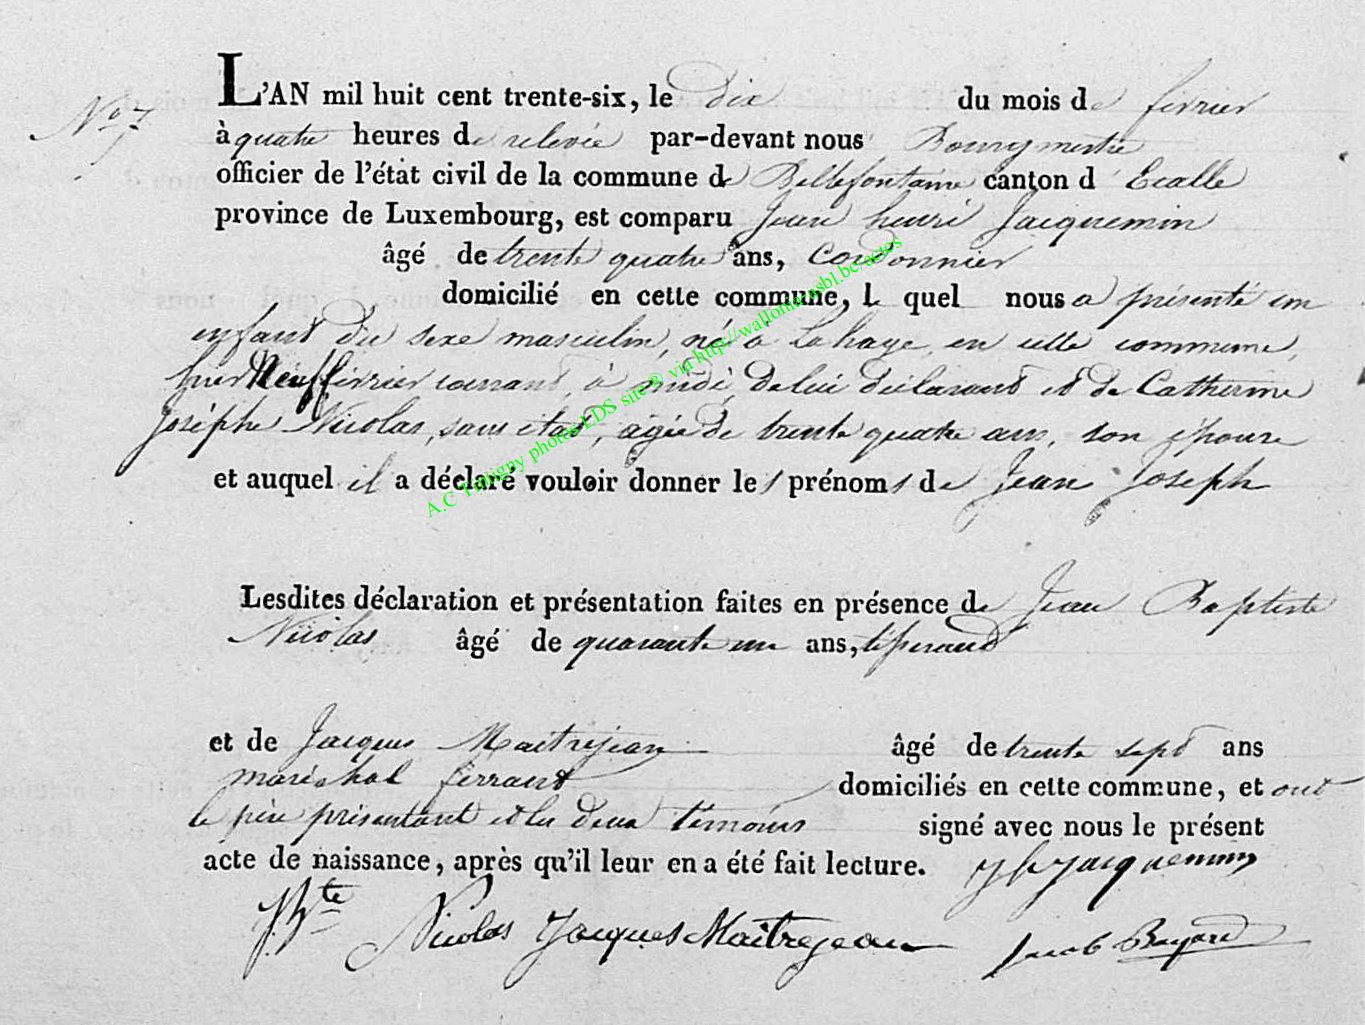 L'AN mil huit cent trente-six, le dix du mois de février
N° 7
à quatre heures de relevée par-devant nous Bourgmestre
officier de l'état civil de la commune de Bellefontaine canton d'Etalle
province de Luxembourg, est comparu Jean henri Jacquemin
âgé de trente quatre ans, Cordonnier
domicilié en cette commune, l quel nous a présenté un
enfant du sexe masculin, né à Lahaye, en cette commune,
hier Neuf février courant, à midi, de lui déclarant et de Catherine
Joséphe Nicolas, sans état, agée de trente quatre ans, son épouse
et auquel il a déclaré vouloir donner les prénoms de Jean Joseph
A.C Tintigny photos LDS site® via http://wallonia-asbl.be/actes
Lesdites déclaration et présentation faites en présence de Jean Baptiste
Nicolas âgé de quarante un ans, tisserand
et de Jacques Maitrejean âgé de trente sept ans
maréchal ferrant domiciliés en cette commune, et ont
le père présentant et les deux témoins signé avec nous le présent
acte de naissance, après qu'il leur en a été fait lecture. J h Jacquemin
J Bte Nicolas Jacques Maitrejean Jacob Bayard